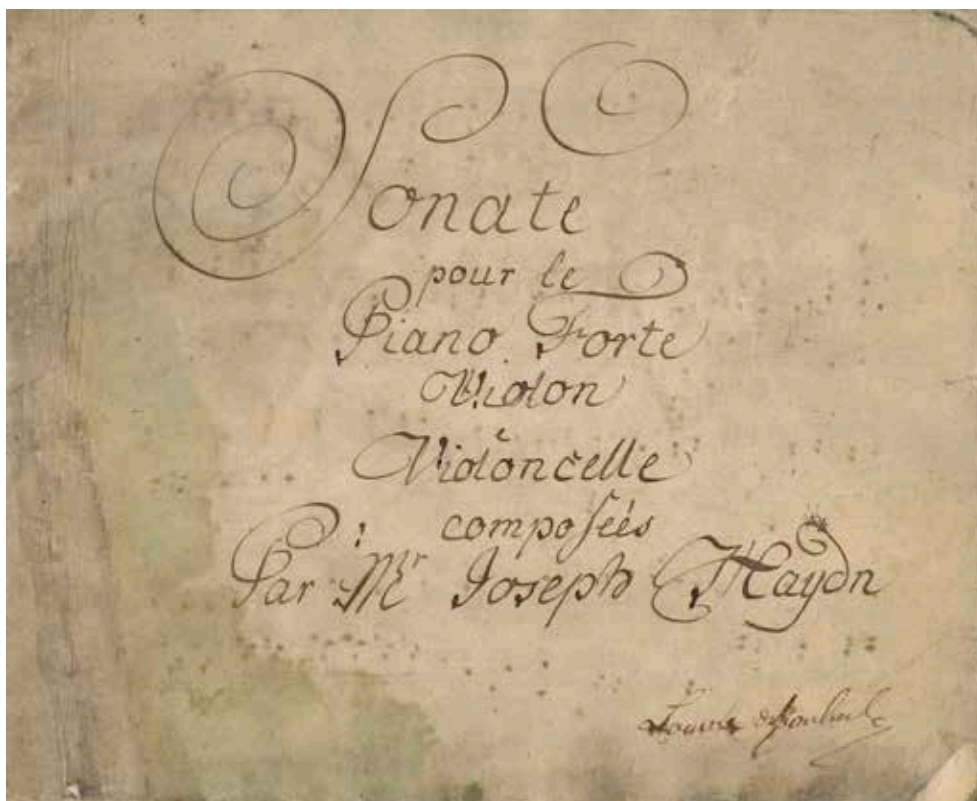 Sonate
pour le
Piano Forte
Violon
e
Violoncelle
composeés
Par Mr Joseph Haydn